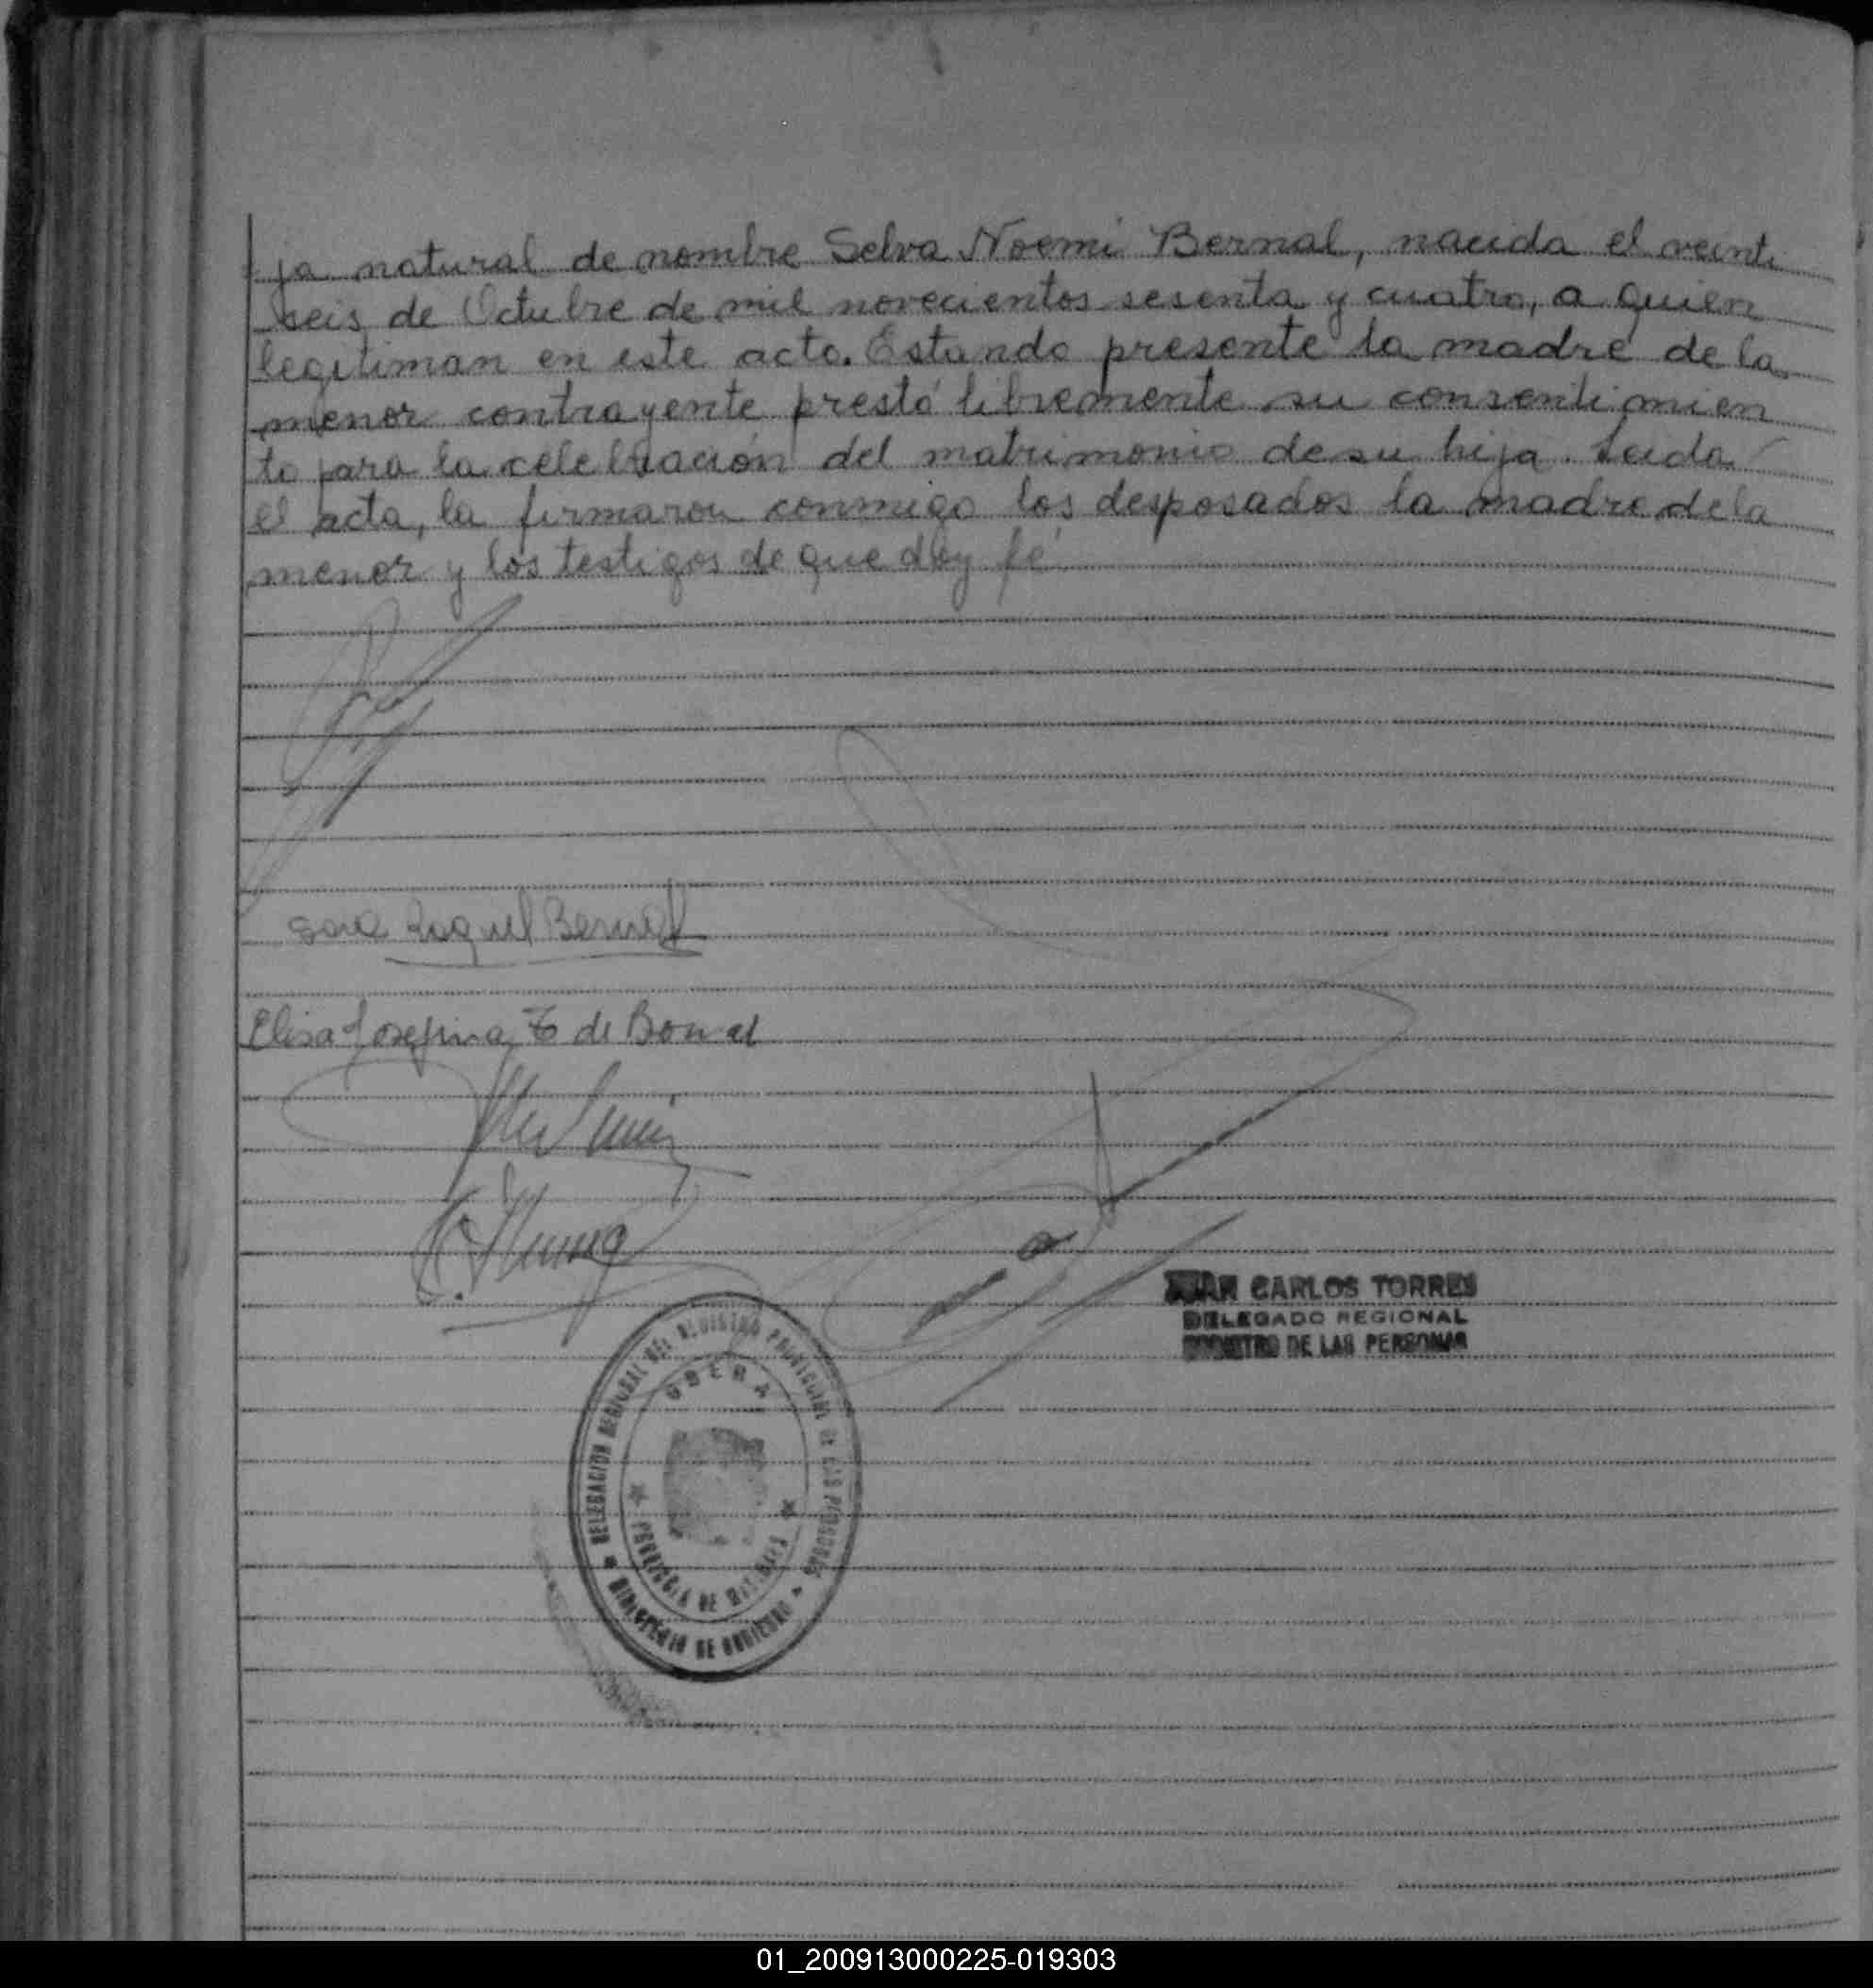 ja natural de nombre Selva Noemi Bernal, nacida el veinti
seis de Octubre de mil novecientos sesenta y cuatro, a quien
legitiman en este acto. Estando presente la madre de la
menor contrayente prestó libremente su consentimien
to para la celebración del matrimonio de su hija. Leida
el acta, la firmaron conmigo los desposados la madre de la
menor y los testigos de que doy fé
Sara Raquel Bernal
Elisa Josefina de
JUAN CARLOS TORRES
DELEGADO REGIONAL
REGISTRO DE LAS PERSONAS
DELEGACION REGIONAL DEL REGISTRO PROVINCIAL DE LAS PERSONAS
OBERA
PROVINCIA DE MISIONES
MINISTERIO DE GOBIERNO
01_200913000225-019303